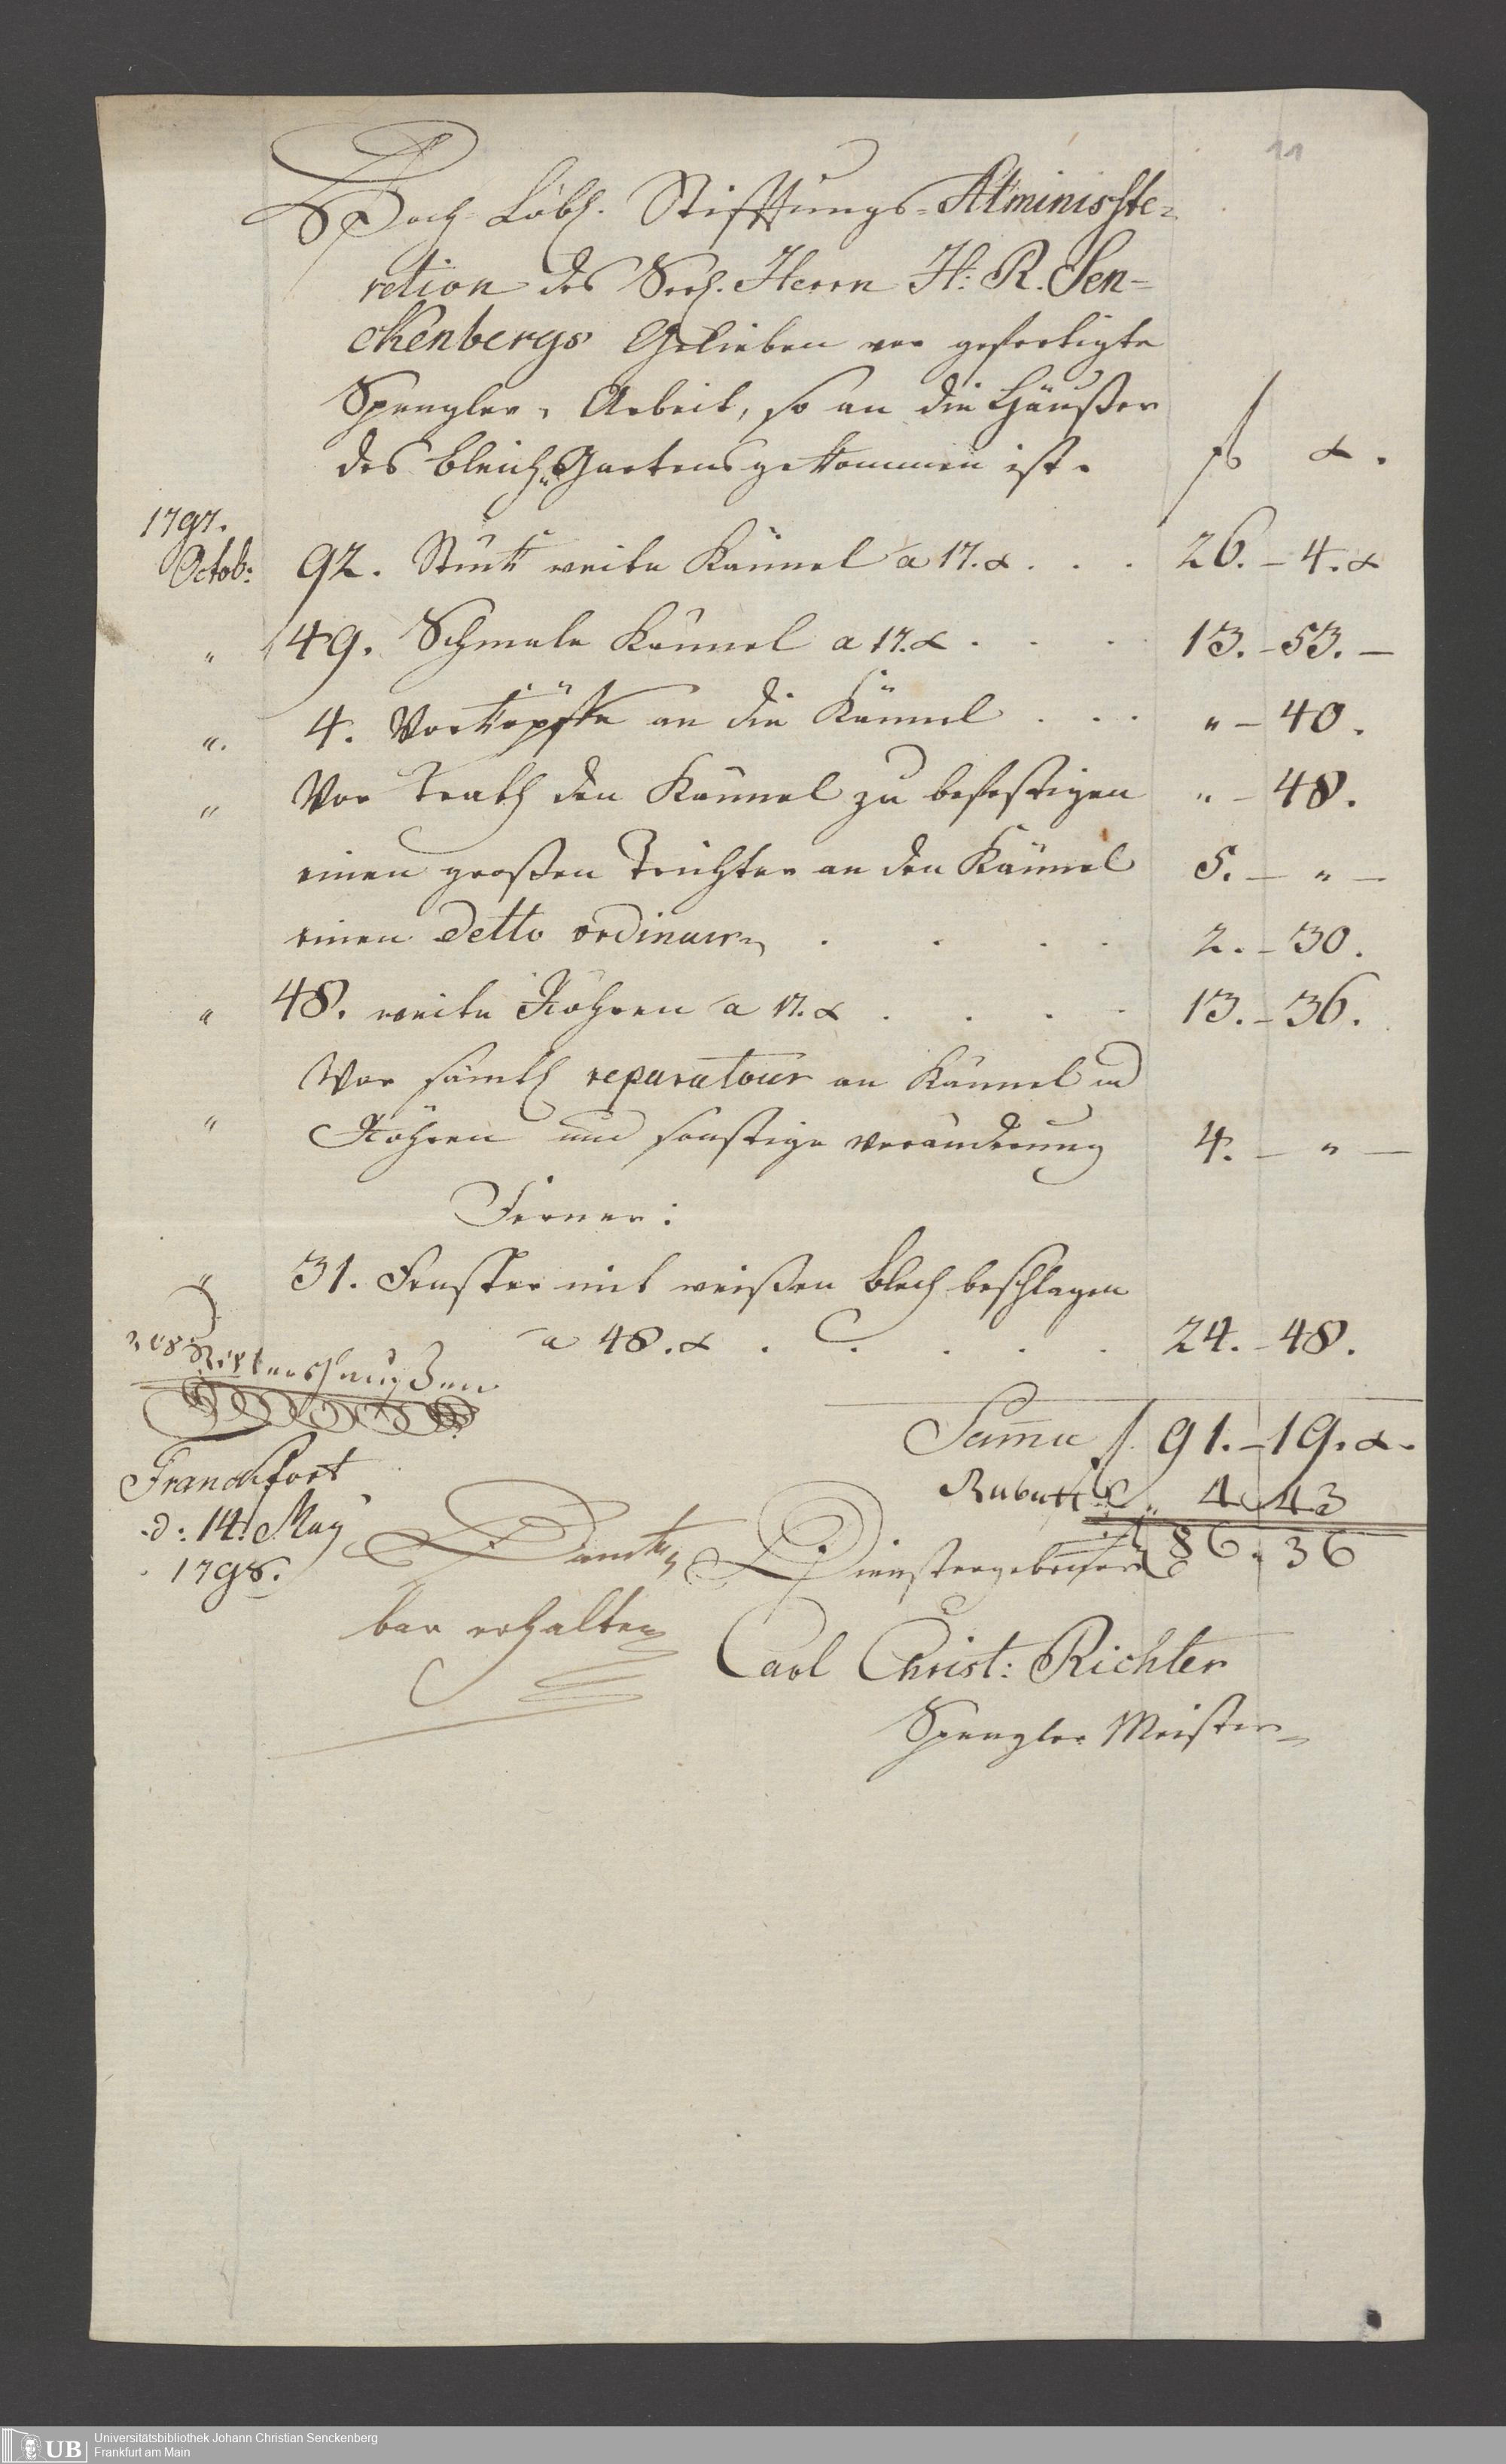 11
Hoch Löbl. Stifftungs-Atministe-
ration des Seel. Herrn H: R. Sen-
ckenbergs Gelieben vor gefertigte
Spengler, Arbeit, so an die Häußer
des bleich Gartens gekommen ist. f x.
1797.
Octob: 92. Stück weite Kännel a 17. x . . . 26. - 4. x
" 49. Schmale Kännel a 17. x . . . 13. - 53. -
". 4. Vorköpffe an die Kännel . . . " - 40.
" Vor Trath den Kännel zu befestigen " - 48.
einen großen Trichter an den Kännel 5. - " -
einen detto ordinairen . . . . 2. - 30.
" 48. weite Röhren a 17. x . . . . 13. - 36.
Vor sämtl reparatour an Kännel und
" Röhren und sonstige veränderung 4. - " -
Ferner:
" 31. Fenster mit weißen blech beschlagen
a 48. x . . . . . 24. - 48.
Summa f 91. - 19. x.
Rabatt " 4 43
86. 36
Franckfort
d: 14. May
1798.
Danck
bar erhalten
Dienstergebenster
Carl Christ: Richter
Spengler Meister
UB Universitätsbibliothek Johann Christian Senckenberg
Frankfurt am Main